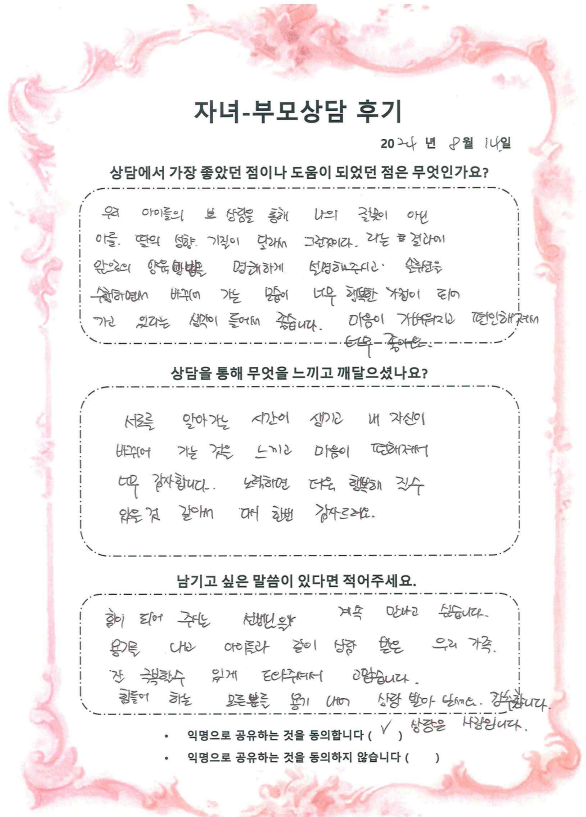 자녀-부모상담 후기
2024 년 8월 14일
상담에서 가장 좋았던 점이나 도움이 되었던 점은 무엇인가요?
우리 아이들의 상담을 통해 나의 아닌
아들. 딸의 성향. 기질이 달라서 라는 결과에
앞으로의 양육방법을 명쾌하게 설명해주시고
수행하면서 바뀌어 가는 모습이 너무 행복한 가정이 되어
가고 있다는 생각이 들어서 좋습니다. 마음이 가벼워지고 편안해져서
너무 좋아요.
상담을 통해 무엇을 느끼고 깨달으셨나요?
서로를 알아가는 시간이 생기고 내 자신이
바뀌어 가는 것을 느끼고 마음이 편해져서
너무 감사합니다. 노력하면 더욱 행복해 질수
있을것 같아서 다시 한번 감사드려요.
남기고 싶은 말씀이 있다면 적어주세요.
힘이 되어 주시는 선생님 계속 만나고 싶습니다.
용기를 내고 아이들과 같이 상담 받은 우리 가족.
잘 극복할수 있게 도와주셔서 고맙습니다.
힘들어 하는 모든분들 용기 내어 상담 받아 보세요. 감사합니다.
상담은 사랑입니다.
• 익명으로 공유하는 것을 동의합니다 ( ✓ )
• 익명으로 공유하는 것을 동의하지 않습니다 ( )